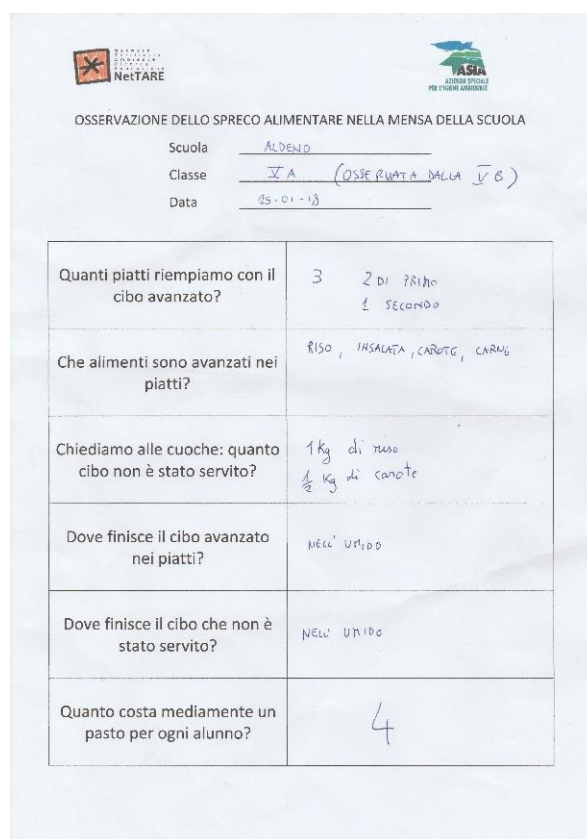 NetTARE
ASIA
AZIENDA SPECIALE
PER L'IGIENE AMBIENTALE
OSSERVAZIONE DELLO SPRECO ALIMENTARE NELLA MENSA DELLA SCUOLA
Scuola ALDENO
Classe V A (OSSERVATA DALLA V B)
Data 25-01-18
Quanti piatti riempiamo con il
cibo avanzato?
3 2 DI PRIMO
1 SECONDO
Che alimenti sono avanzati nei
piatti?
RISO, INSALATA, CAROTE, CARNE
Chiediamo alle cuoche: quanto
cibo non è stato servito?
1 Kg di riso
1/2 Kg di carote
Dove finisce il cibo avanzato
nei piatti?
NELL' UMIDO
Dove finisce il cibo che non è
stato servito?
NELL' UMIDO
Quanto costa mediamente un
pasto per ogni alunno?
4